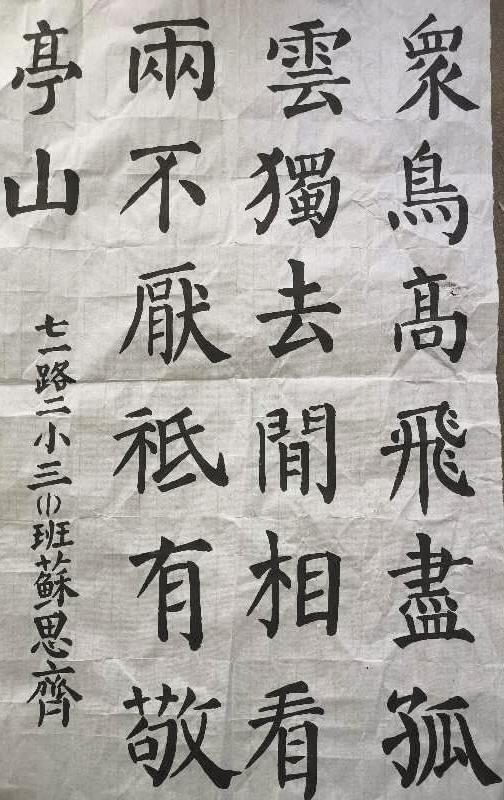 眾鳥髙飛盡孤
雲獨去間相看
兩不厭祗有敬
亭山
七一路二小三(1)班蘇思齊